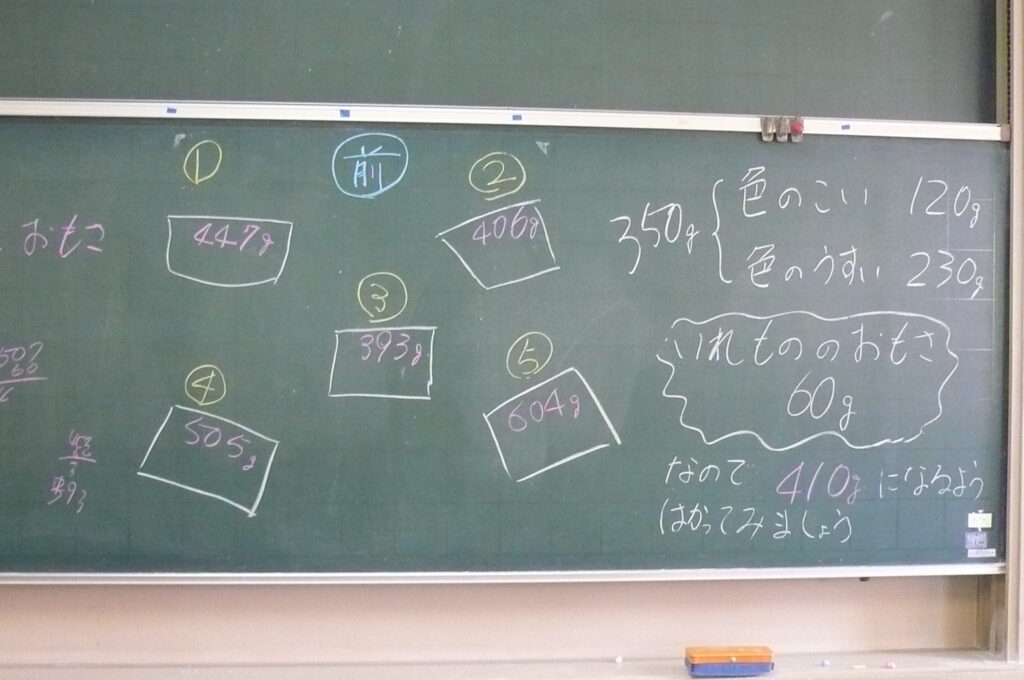 おもさ
①
447g
前
②
406g
③
393g
④
505g
⑤
604g
350g
色のこい 120g
色のうすい 230g
いれもののおもさ
60g
なので 410gになるよう
はかってみましょう